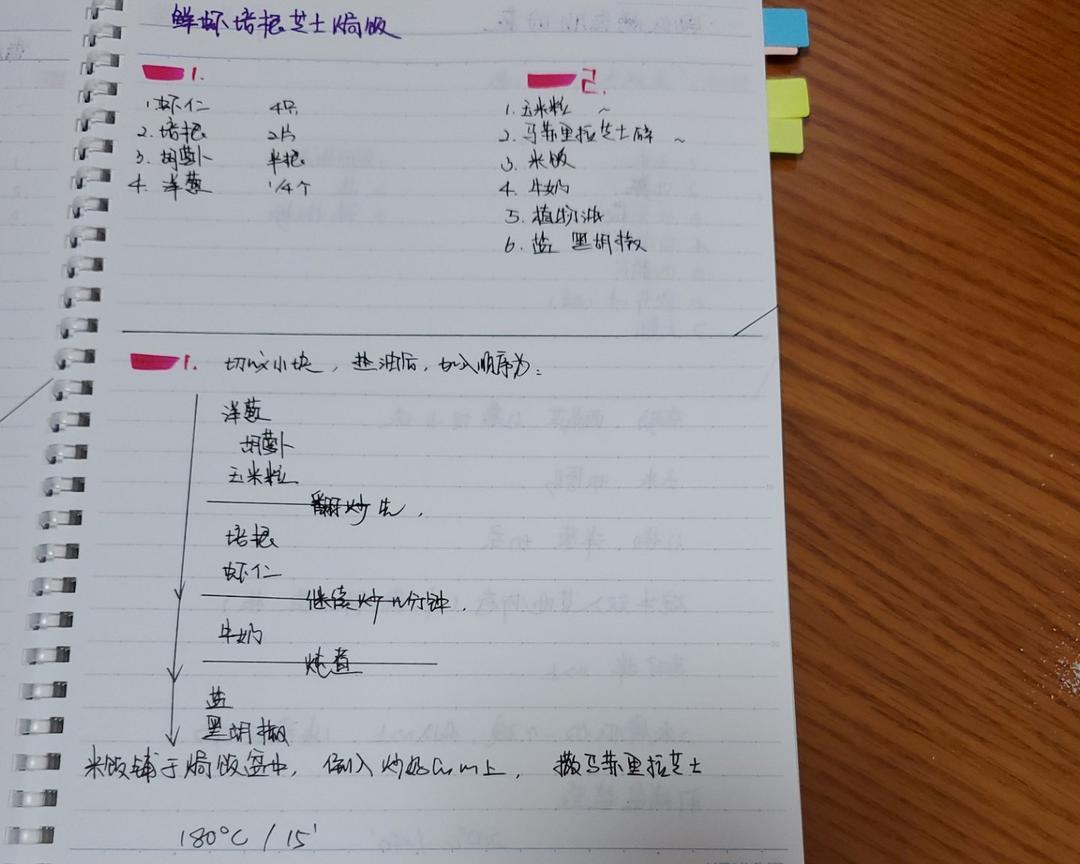 鲜虾培根芝士焗饭
1.
1. 虾仁 4只
2. 培根 2片
3. 胡萝卜 半根
4. 洋葱 1/4个
2.
1. 玉米粒 ~
2. 马苏里拉芝士碎 ~
3. 米饭
4. 牛奶
5. 植物油
6. 盐 黑胡椒
1. 切成小块，热油后，加入顺序为：
洋葱
胡萝卜
玉米粒
翻炒先，
培根
虾仁
继续炒n分钟.
牛奶
炖煮
盐
黑胡椒
米饭铺于焗饭盘中，倒入炒好 上，撒马苏里拉芝士
180℃ / 15'